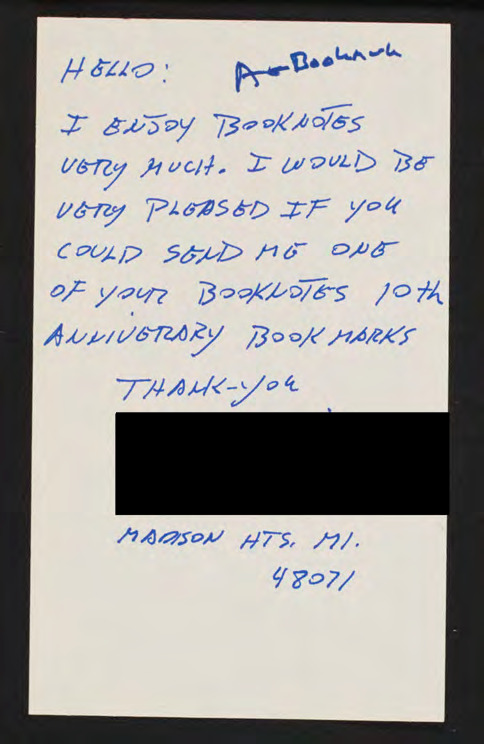 HELLO:
A-Bookmark
I ENJOY BOOKNOTES
VERY MUCH. I WOULD BE
VERY PLEASED IF YOU
COULD SEND ME ONE
OF YOUR BOOKNOTES 10th
ANNIVERARY BOOK MARKS
THANK-YOU
MADISON HTS. MI.
48071